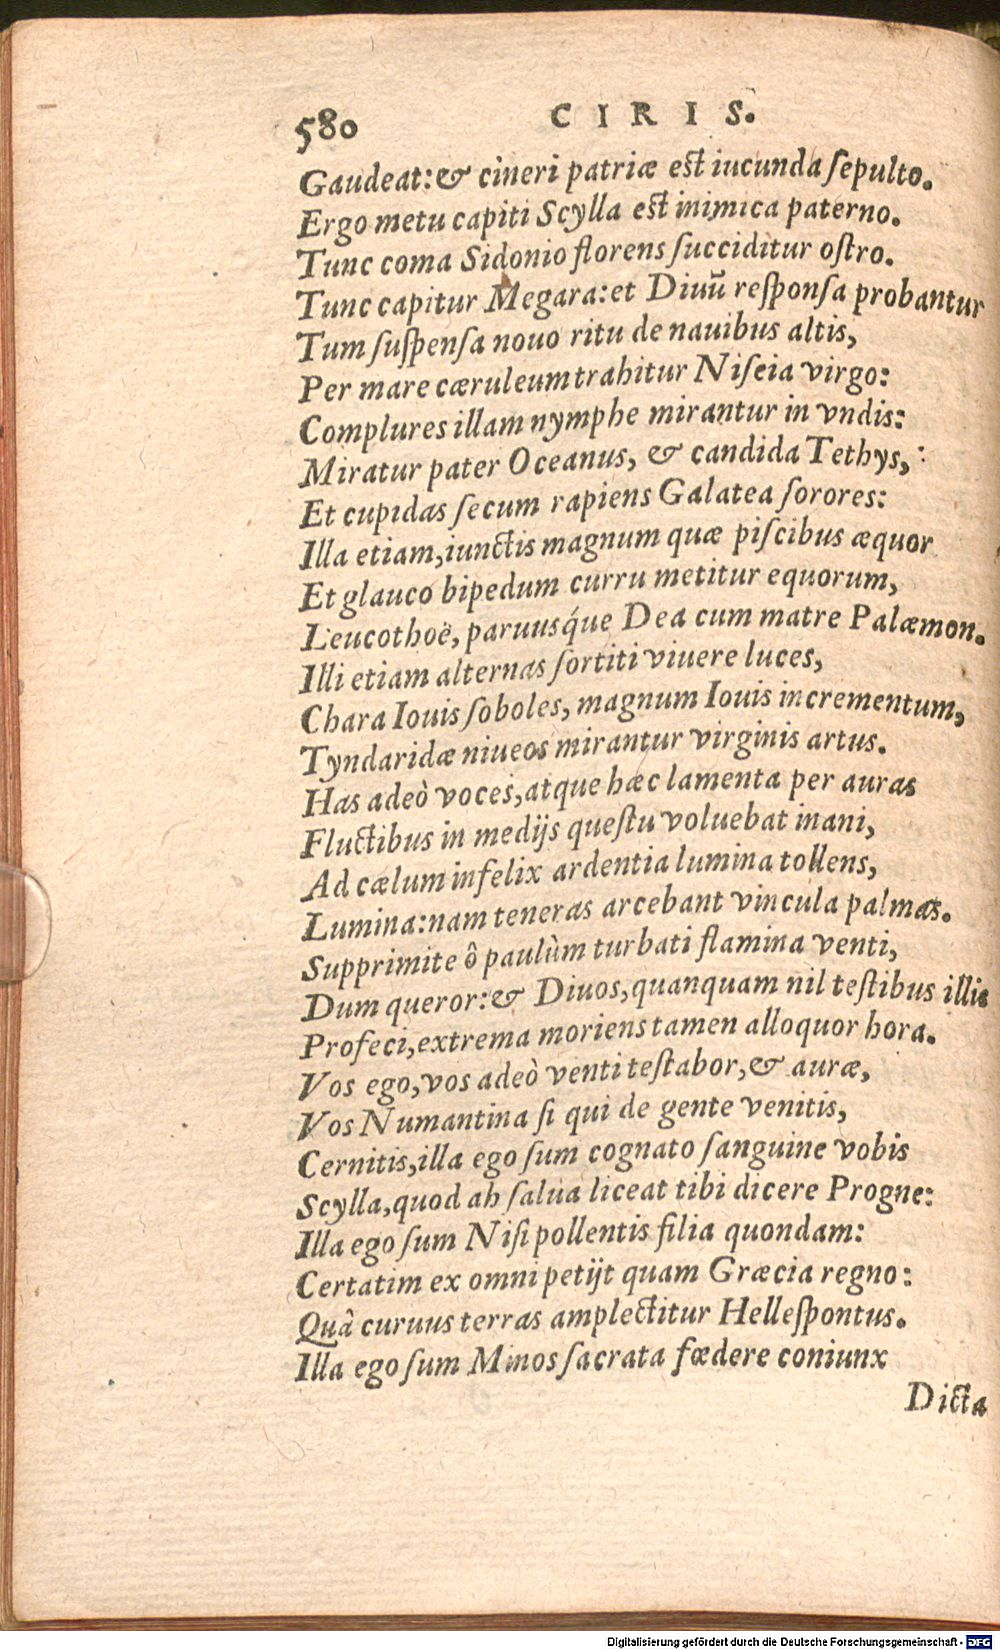 580 CIRIS.
Gaudeat:& cineri patriæ est iucunda ſepulto.
Ergo metu capiti Scylla est inimica paterno.
Tunc coma Sidonio florens ſucciditur oſtro.
Tunc capitur Megara:et Diuũ reſponſa probantur
Tum ſuſpenſa nouo ritu de nauibus altis,
Per mare cæruleum trahitur Niſeia virgo:
Complures illam nymphe mirantur in vndis:
Miratur pater Oceanus, & candida Tethys,
Et cupidas ſecum rapiens Galatea ſorores:
Illa etiam,iunctis magnum quæ piſcibus æquor
Et glauco bipedum curru metitur equorum,
Leucothoë, paruusq́ue Dea cum matre Palæmon.
Illi etiam alternas ſortiti viuere luces,
Chara Iouis ſoboles, magnum Iouis incrementum,
Tyndaridæ niueos mirantur virginis artus.
Has adeò voces,atque hæc lamenta per auras
Fluctibus in medijs queſtu voluebat inani,
Ad cælum infelix ardentia lumina tollens,
Lumina:nam teneras arcebant vincula palmas.
Supprimite ô paulùm turbati flamina venti,
Dum queror:& Diuos,quanquam nil teſtibus illis
Profeci,extrema moriens tamen alloquor hora.
Vos ego,vos adeò venti teſtabor,& auræ,
Vos Numantina ſi qui de gente venitis,
Cernitis,illa ego ſum cognato ſanguine vobis
Scylla,quod ah ſalua liceat tibi dicere Progne:
Illa ego ſum Niſi pollentis filia quondam:
Certatim ex omni petijt quam Græcia regno:
Quâ curuus terras amplectitur Helleſpontus.
Illa ego ſum Minos ſacrata fœdere coniunx
Dicta
Digitalisierung gefördert durch die Deutsche Forschungsgemeinschaft - DFG